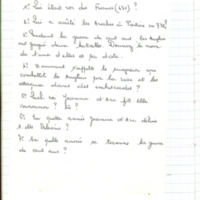 1°: Qui était roi des Francs (481) ?
2°: Qui a arrêté les Arabes à Poitiers en 732
3°: Pendant la guerre de cent ans les Anglais
ont gagné deux batailles. Donnez le nom de
l'une d'elles et sa date.
4°: Comment s'appelle le seigneur qui
combattit les Anglais par la ruse et les
attaques dans des embuscades ?
5°: Quel roi Jeanne d'Arc fit-elle
couronner ?
6°: En quelle année Jeanne d'Arc délivra
t-elle Orléans ?
7°: En quelle année se termine la guerre
de cent ans ?